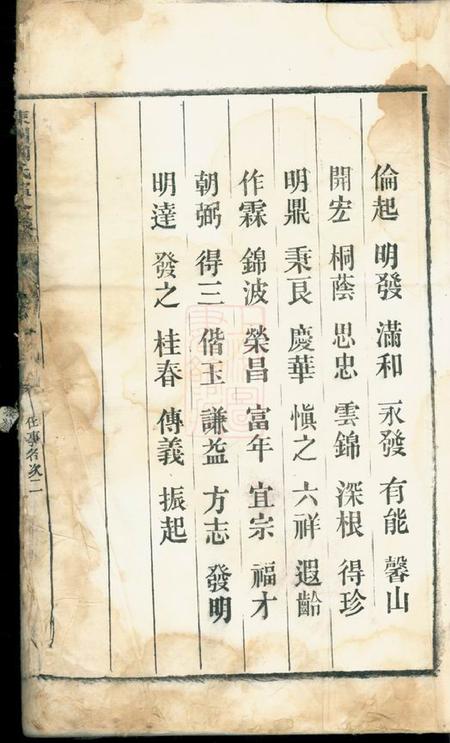 倫起 明發 滿和 永發 有能 馨山
開宏 桐蔭 思忠 雲錦 深根 得珍
明鼎 秉良 慶華 愼之 六祥 遐齡
作霖 錦波 榮昌 富年 宜宗 福才
朝弼 得三 偕玉 謙益 方志 發明
明達 發之 桂春 傳義 振起
任事名次 二